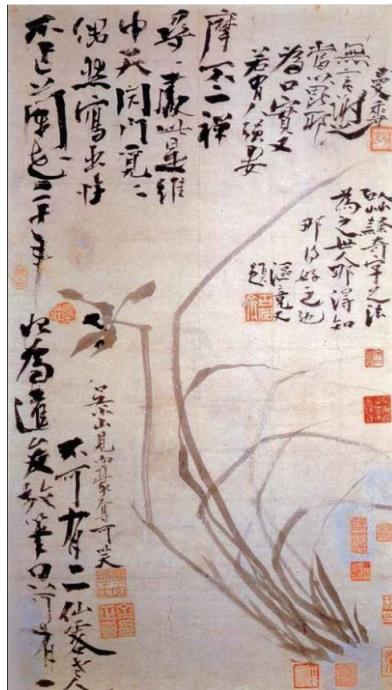 不作蘭花二十年
偶然寫出性
中天閉門覓〻
尋〻處此是維
摩不二禪
若有人强要
爲口實又
當以毘耶
無言謝之
曼香
以草隸奇字之法
爲之世人那得知
那得好之也
漚竟又
題
始爲達俊放筆只可有一
不可有二仙客老人
吳小山見而豪奪可笑